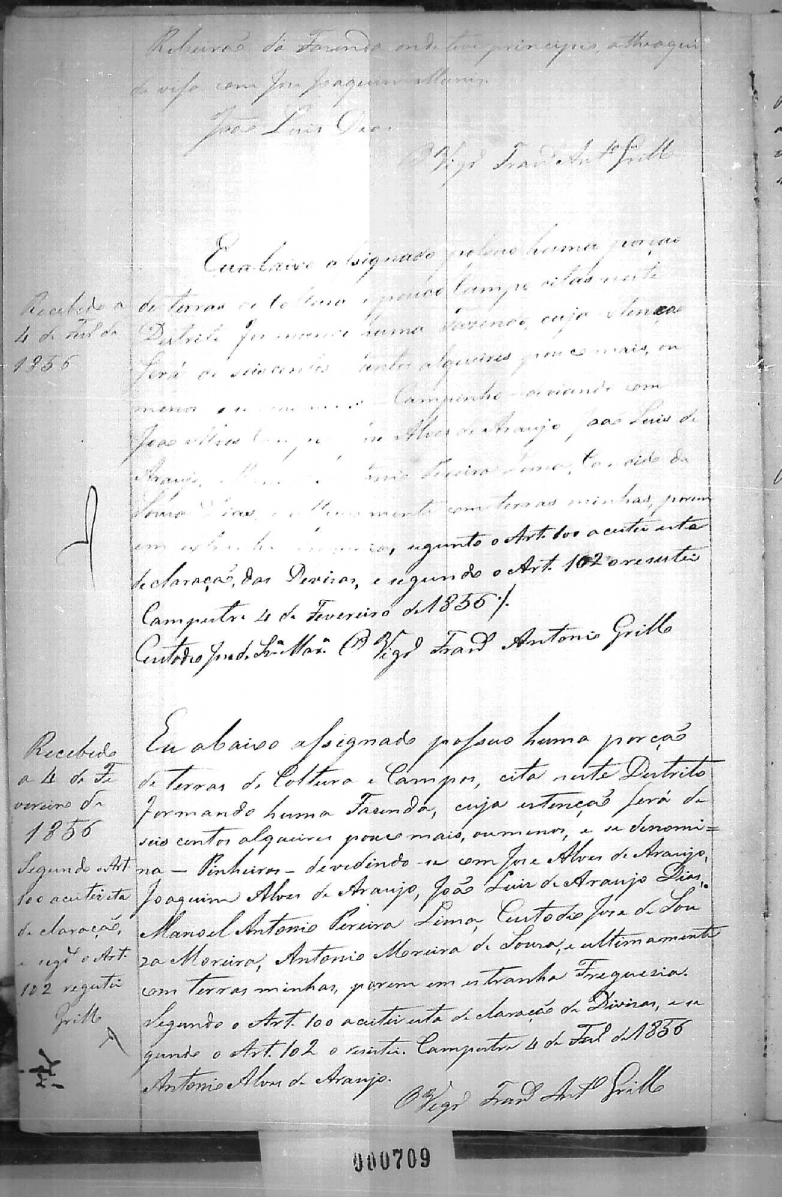 Ribeirão da Fazenda onde teve principio, athe aqui
deviso com Jose Joaquim
João Luis Dias
O Vigrº Franº Antº Grillo
Recebido a
4 de Fevº de
1856
Eu abaixo assignado possuo huma porção
de terras de Coltura e Campo citas neste
Destrito formando huma Fazenda, cuja estenção
será de seis centos alqueires pouco mais, ou
menos Campinho devidindo com
João Alves de Araujo João Luis de
Araujo Pereira Lima, Custodio de
Souza Dias, e ultimamente com terras minhas, porem
em estranha segundo o Art. 100 aceitei esta
declaração, das Devizas, e segundo o Art. 102 o resistei
Campestre 4 de Fevereiro de 1856 /.
Custodio José de O Vigrº Franº Antonio Grillo
Recebido
a 4 de Fe
vereiro de
1856
Segundo o Art
100 aceitei esta
de claração,
e segº o Art.
102 registei
Grillo
Eu abaixo assignado possuo huma porção
de terras de Coltura e Campos, cita neste Destrito
formando huma Fazenda, cuja estenção será de
seis centos alqueires pouco mais, ou menos, e se denomi=
na - Pinheiros - devedindo-se com Jose Alves de Araujo,
Joaquim Alves de Araujo, João Luis de Araujo Dias,
Manoel Antonio Pereira Lima, Custodio Jose de Sou
za Moreira, Antonio Moreira de Souza, e ultimamente
com terras minhas, porem em estranha Freguezia.
Segundo o Art. 100 aceitei esta declaração de Divizas, e se
gundo o Art. 102 o resistei. Campestre 4 de Feº de 1856
Antonio Alves de Araujo.
O Vigrº Franº Antº Grillo
000709